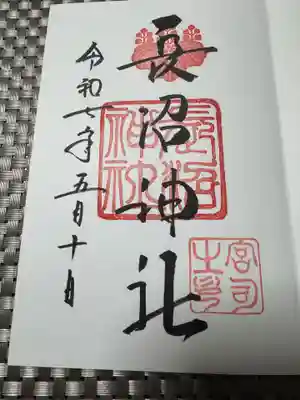 長沼神社
令和七年五月十日
長沼神社
宮司之印